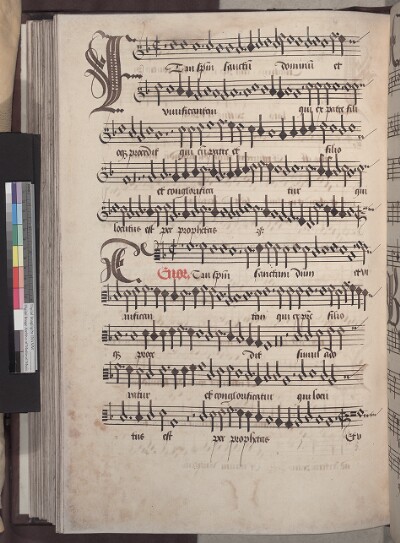 Tan spm̄ sanctū dominū et
vivificantem qui ex patre fili
oq̄ procedit qui cū patre et filio
et conglorifica tur qui
locutus est per prophetas
Tenor Tan spm̄ sanctum dnm̄ et vi
vifican tem qui ex pr̄e filio
q̄ proce dit simul ado
ratur et conglorificatur qui locu
tus est per prophetas Et v